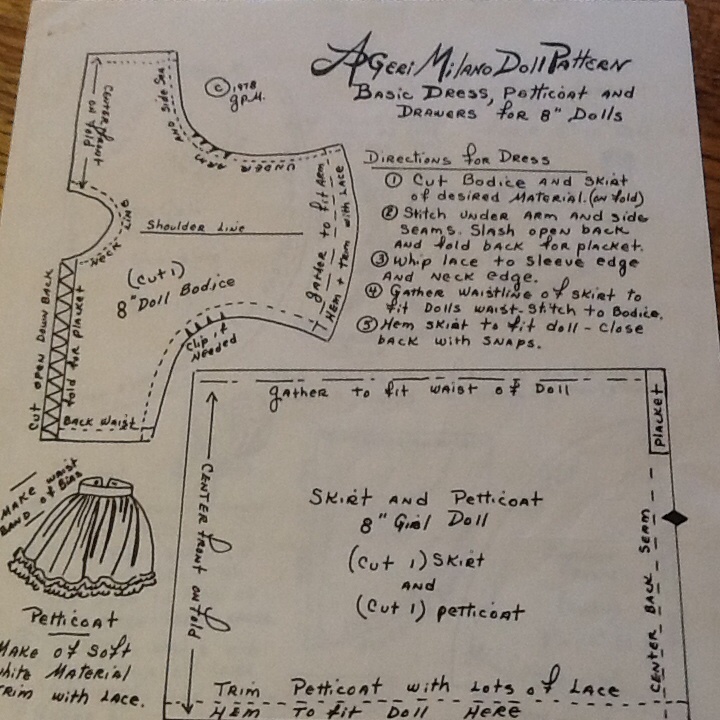 A Geri Milano Doll Pattern
Basic Dress, Petticoat and
Drawers for 8" Dolls
© 1978
g.p.M.
Directions for Dress
① Cut Bodice and Skirt
of desired Material. (on fold)
② Stitch under arm and side
seams. Slash open back
and fold back for placket.
③ Whip lace to sleeve edge
and neck edge.
④ Gather waistline of skirt to
fit Dolls waist - Stitch to Bodice.
⑤ Hem skirt to fit doll - Close
back with snaps.
Center front
on fold
UNDER ARM AND side Sea
Neck Line
Shoulder Line
gather to fit Arm
Hem + trim with Lace
(Cut 1)
8" Doll Bodice
Clip if
Needed
Cut open Down Back
fold for placket
Back Waist
gather to fit waist of Doll
Placket
Center front on fold
Skirt and Petticoat
8" Girl Doll
(Cut 1) Skirt
and
(Cut 1) petticoat
Center Back Seam
Trim Petticoat with Lots of Lace
Hem To fit Doll Here
Make waist
Band of Bias
Petticoat
Make of Soft
white Material
Trim with Lace.